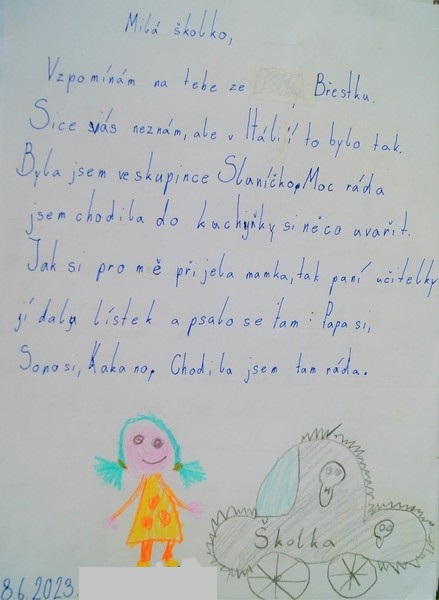 Milá školko,
Vzpomínám na tebe ze Břestku.
Sice vás neznám, ale v Itálii to bylo tak.
Byla jsem ve skupince Slaníčko, Moc ráda
jsem chodila do kuchyňky si něco uvařit.
Jak si pro mě přijela mamka, tak paní učitelky
jí daly lístek a psalo se tam: Papa si,
Sono si, Kaka no. Chodila jsem tam ráda.
Školka
8.6.2023.